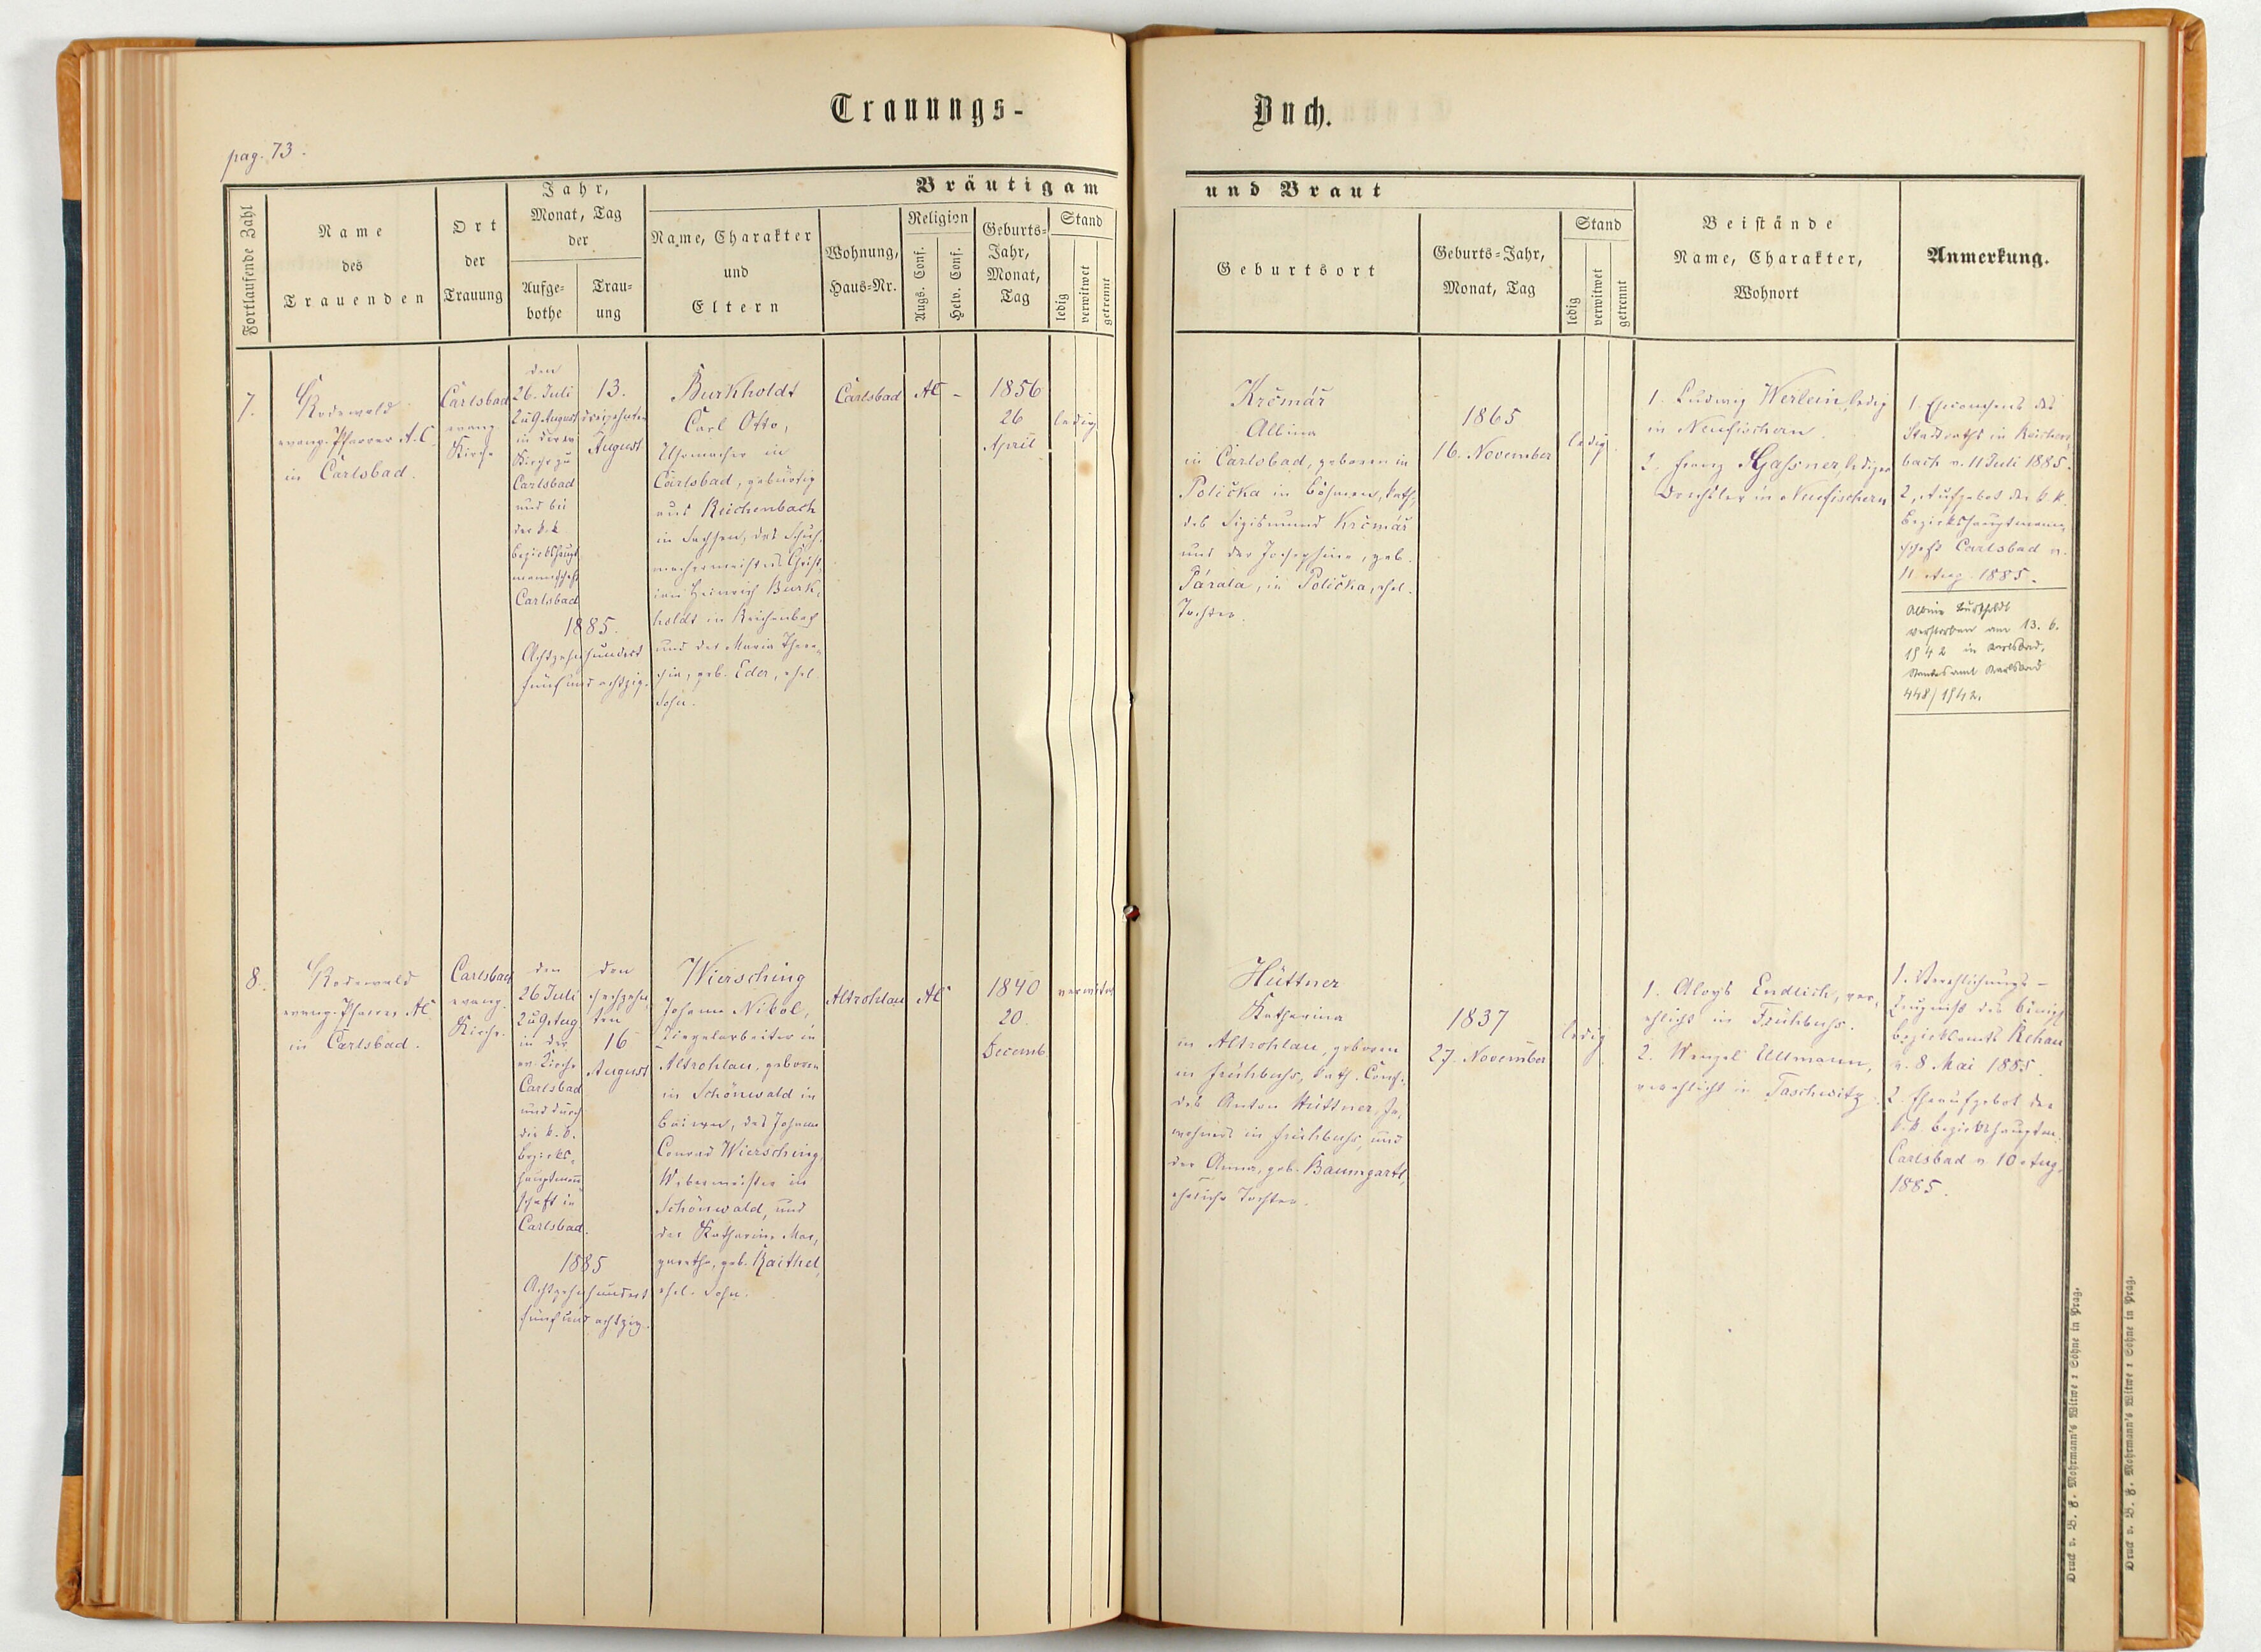 Trauungs-
Buch.
pag. 73.
Fortlaufende Zahl
Name
des
Trauenden
Ort
der
Trauung
Jahr,
Monat, Tag
der
Aufge-
bothe
Trau-
ung
Bräutigam
Name, Charakter
und
Eltern
Wohnung,
Haus-Nr.
Religion
Augs. Conf.
Helv. Conf.
Geburts-
Jahr,
Monat,
Tag
Stand
ledig
verwitwet
getrennt
und Braut
Geburtsort
Geburts-Jahr,
Monat, Tag
Stand
ledig
verwitwet
getrennt
Beistände
Name, Charakter,
Wohnort
Anmerkung.
7.
Rodewald
evang. Pfarrer A.C.
in Carlsbad.
Carlsbad
evang.
Kirche
den
26. Juli
2 u 9 August
in der ev.
Kirche zu
Carlsbad
und bei
der k.k.
Bezirkshaupt
mannschaft
Carlsbad
13.
dreizehnten
August
1885.
Achtzehnhundert
fünf und achtzig.
Burkholdt
Carl Otto,
Uhrmacher in
Carlsbad, gebürtig
aus Reichenbach
in Sachsen, des Schuh-
machermeisters Christ-
ian Heinrich Burk-
holdt in Reichenbach
und der Maria There-
sia, geb. Eder, ehel.
Sohn.
Carlsbad
AC -
1856
26
April
ledig
Krčmář
Albina
in Carlsbad, geboren in
Polička in Böhmen, kath.,
des Sigismund Krčmář
und der Josephine, geb.
Párala, in Polička, ehel.
Tochter.
1865
16. November
ledig
1. Ludwig Werlein, ledig
in Neufischern.
2. Franz Gassner, lediger
Drechsler in Neufischern
1. Eheconsens des
Stadtraths in Reichen-
bach v. 11 Juli 1885.
2, Aufgebot der k.k.
Bezirkshauptmann-
schaft Carlsbad v.
11 Aug. 1885.
Albine Burkholdt
verstorben am 13. 6.
1942 in Karlsbad,
Standesamt Karlsbad
448/1942.
8.
Rodewald
evang. Pfarrer AC
in Carlsbad.
Carlsbad
evang.
Kirche.
den
26 Juli
2 u 9. Aug
in der
ev. Kirche
Carlsbad
und durch
die k.k.
Bezirks-
hauptmann
schaft in
Carlsbad.
den
sechzehn
ten
16
August
1885
Achtzehnhundert
fünf und achtzig.
Wiersching
Johann Nikol,
Ziegelarbeiter in
Altrohlau, geboren
in Schönwald in
Baiern, des Johann
Conrad Wiersching,
Webermeister in
Schönwald, und
der Katharina Mar-
garetha, geb. Raithel,
ehel. Sohn.
Altrohlau
AC
1840
20.
Decemb.
verwitwet
Hüttner
Katharina
in Altrohlau, geboren
in Frühbuss, kath. Conf.,
des Anton Hüttner, In-
wohners in Frühbuss, und
der Anna, geb. Baumgartl,
eheliche Tochter.
1837
27. November
ledig
1. Aloys Endlich, ver-
ehlicht in Frühbuss.
2. Wenzel Ullmann,
verehlicht in Taschwitz.
1. Verehlichungs-
Zeugniß des königl.
Bezirksamts Rehau
v. 8. Mai 1885.
2. Eheaufgebot der
k.k. Bezirkshauptm.
Carlsbad v. 10. Aug.
1885.
Druck v. B. F. Mohrmann's Witwe & Söhne in Prag.
Druck v. B. F. Mohrmann's Witwe & Söhne in Prag.